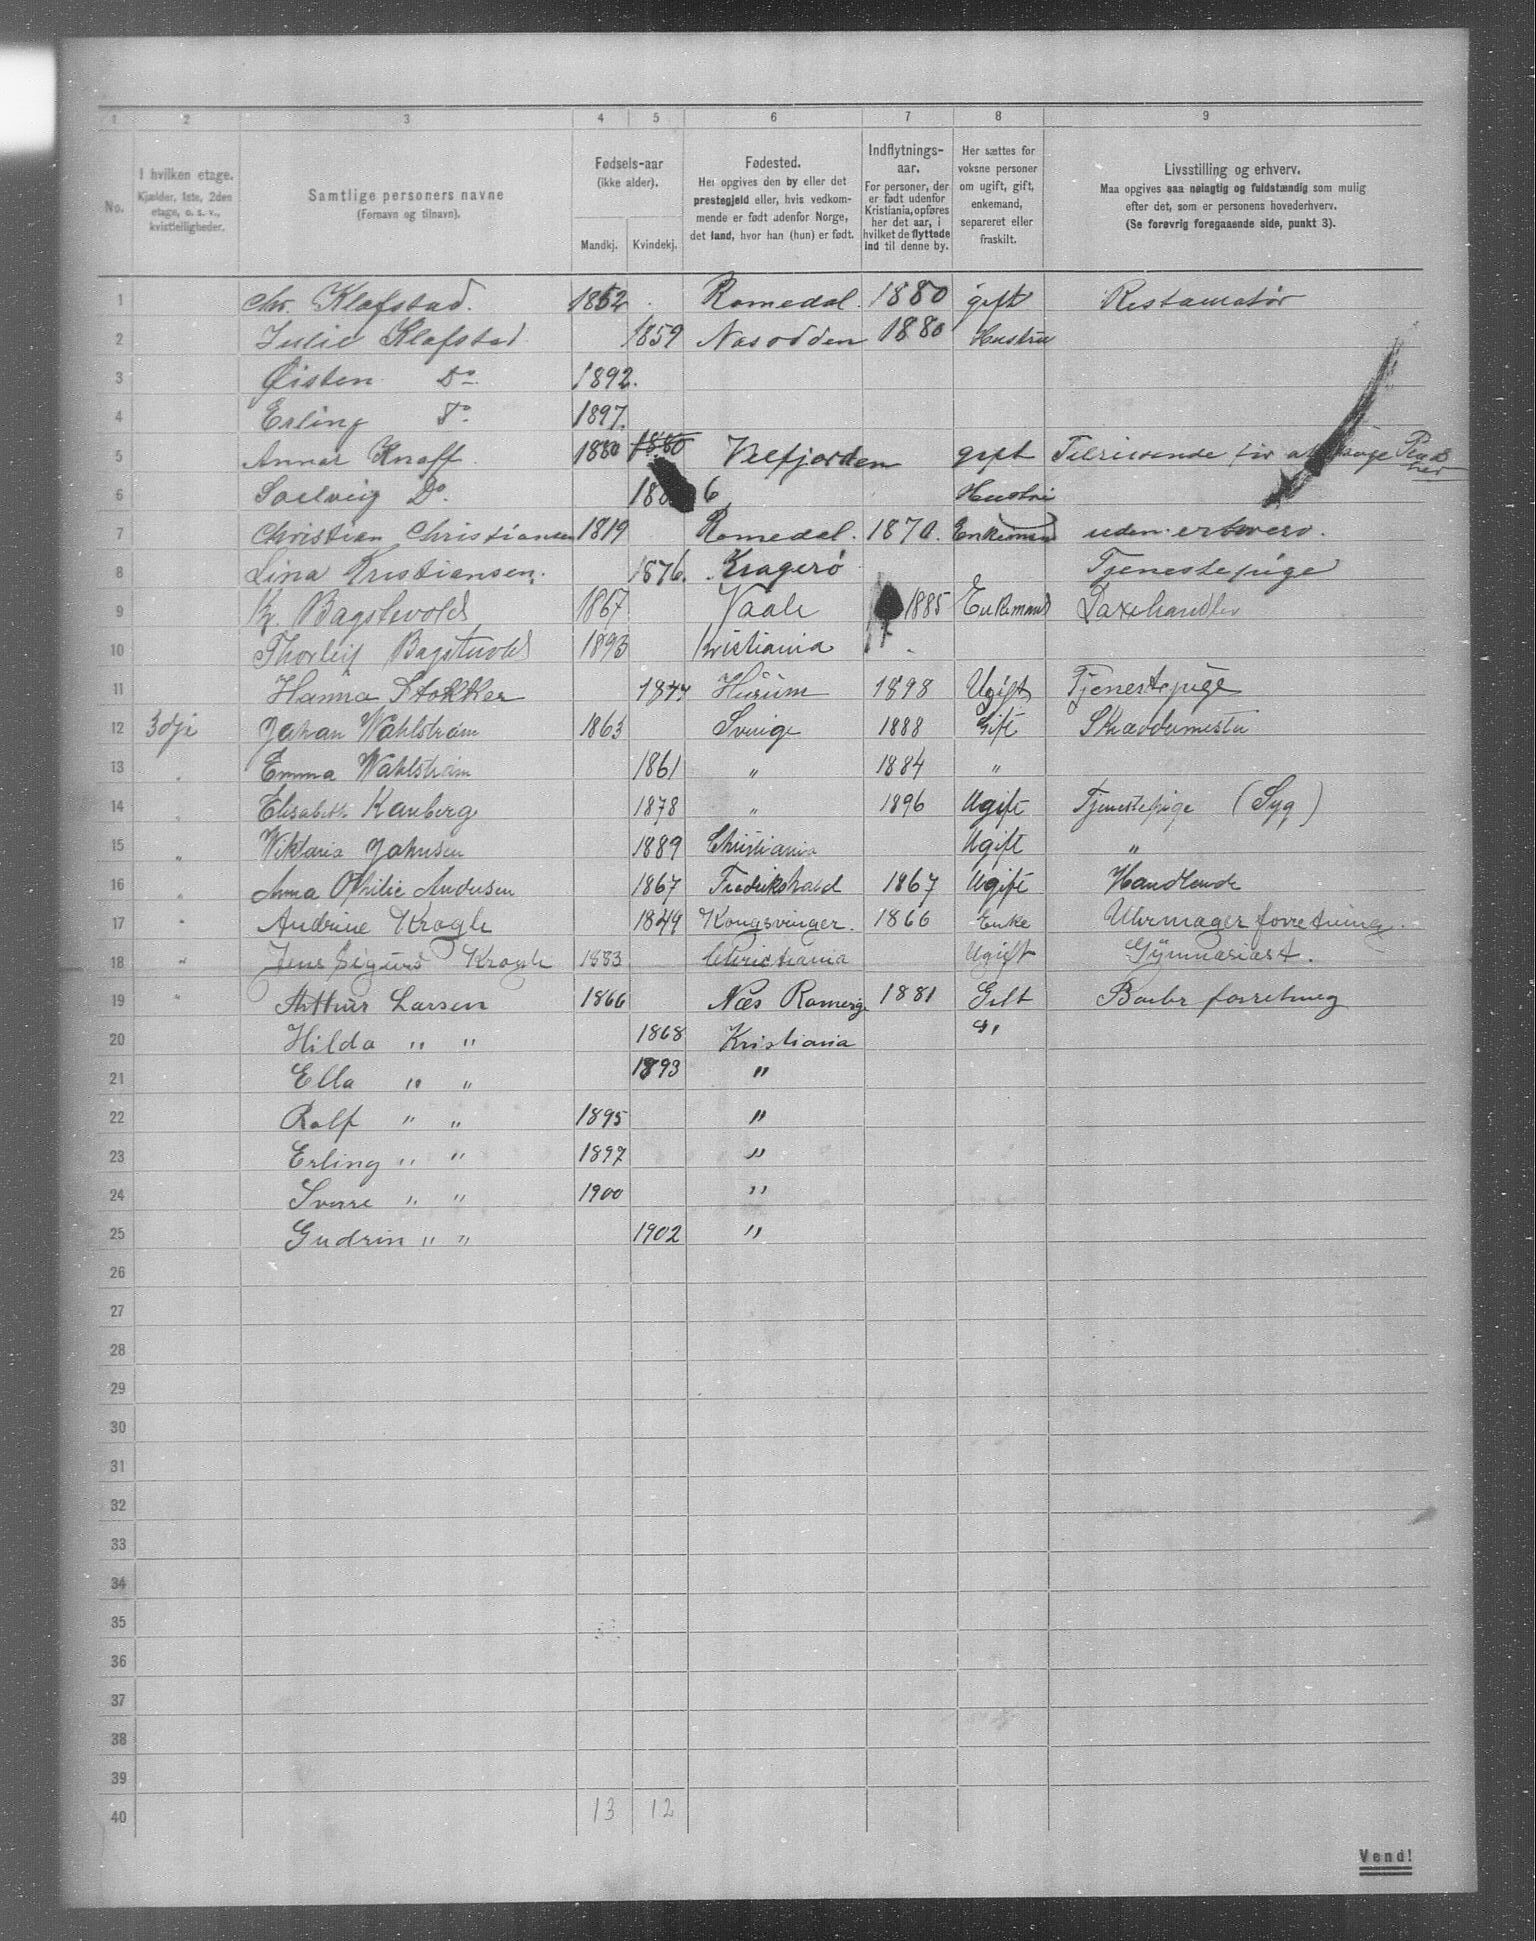 1 2 3 4 5 6 7 8 9
No.
I hvilken etage.
Kjælder, 1ste, 2den
etage, o. s. v.,
kvistleiligheder.
Samtlige personers navne
(Fornavn og tilnavn).
Fødsels-aar
(ikke alder).
Mandkj. Kvindekj.
Fødested.
Her opgives den by eller det
prestegjeld eller, hvis vedkom-
mende er født udenfor Norge,
det land, hvor han (hun) er født.
Indflytnings-
aar.
For personer, der
er født udenfor
Kristiania, opføres
her det aar, i
hvilket de flyttede
ind til denne by.
Her sættes for
voksne personer
om ugift, gift,
enkemand,
separeret eller
fraskilt.
Livsstilling og erhverv.
Maa opgives saa nøiagtig og fuldstændig som mulig
efter det, som er personens hovederhverv.
(Se forøvrig foregaaende side, punkt 3).
1 Chr. Klafstad. 1852 Romedal. 1880 gift Restauratør
2 Julie Klafstad 1859 Nesodden 1880 Hustru
3 Øisten Do 1892.
4 Erling Do 1897.
5 Annar Knoff 1880 1880 Velfjorden gift Tilreisende for at
6 Soelveig Do. 6 Hustru
7 Christian Christiansen 1819 Romedal. 1870. Enkemand uden erhverv.
8 Lina Kristiansen. 1876. Kragerø Tjenestepige
9 Bagstevold 1867 Vaale 1885 Enkemand
10 Thorleif Bagstevold 1893 Kristiania
11 Hanna Stokker 1877 Hurum 1898 Ugift Tjenestepige
12 3dje Johan Wahlstrøm 1863 Sverige 1888 Gift Skræddermester
13 " Emma Wahlstrøm 1861 " 1884 "
14 " Elisabeth Kanberg 1878 " 1896 Ugift Tjenestepige (Syg)
15 " Viktoria Johnsen 1889 Christiania Ugift "
16 " Anna Othilie Andersen 1867 Fredrikshald 1867 Ugift Handlende
17 " Andrine Krogh 1849 Kongsvinger. 1866 Enke Uhrmager forretning.
18 " Jens Sigurd Krogh 1883 Christiania Ugift Gymnasiast.
19 " Arthur Larsen 1866 Næs Romerige 1881 Gift Barber forretning
20 Hilda " " 1868 Kristiania "
21 Ella " " 1893 "
22 Rolf " " 1895 "
23 Erling " " 1897 "
24 Sverre " " 1900 "
25 Gudrun " " 1902 "
26
27
28
29
30
31
32
33
34
35
36
37
38
39
40 13 12
Vend!